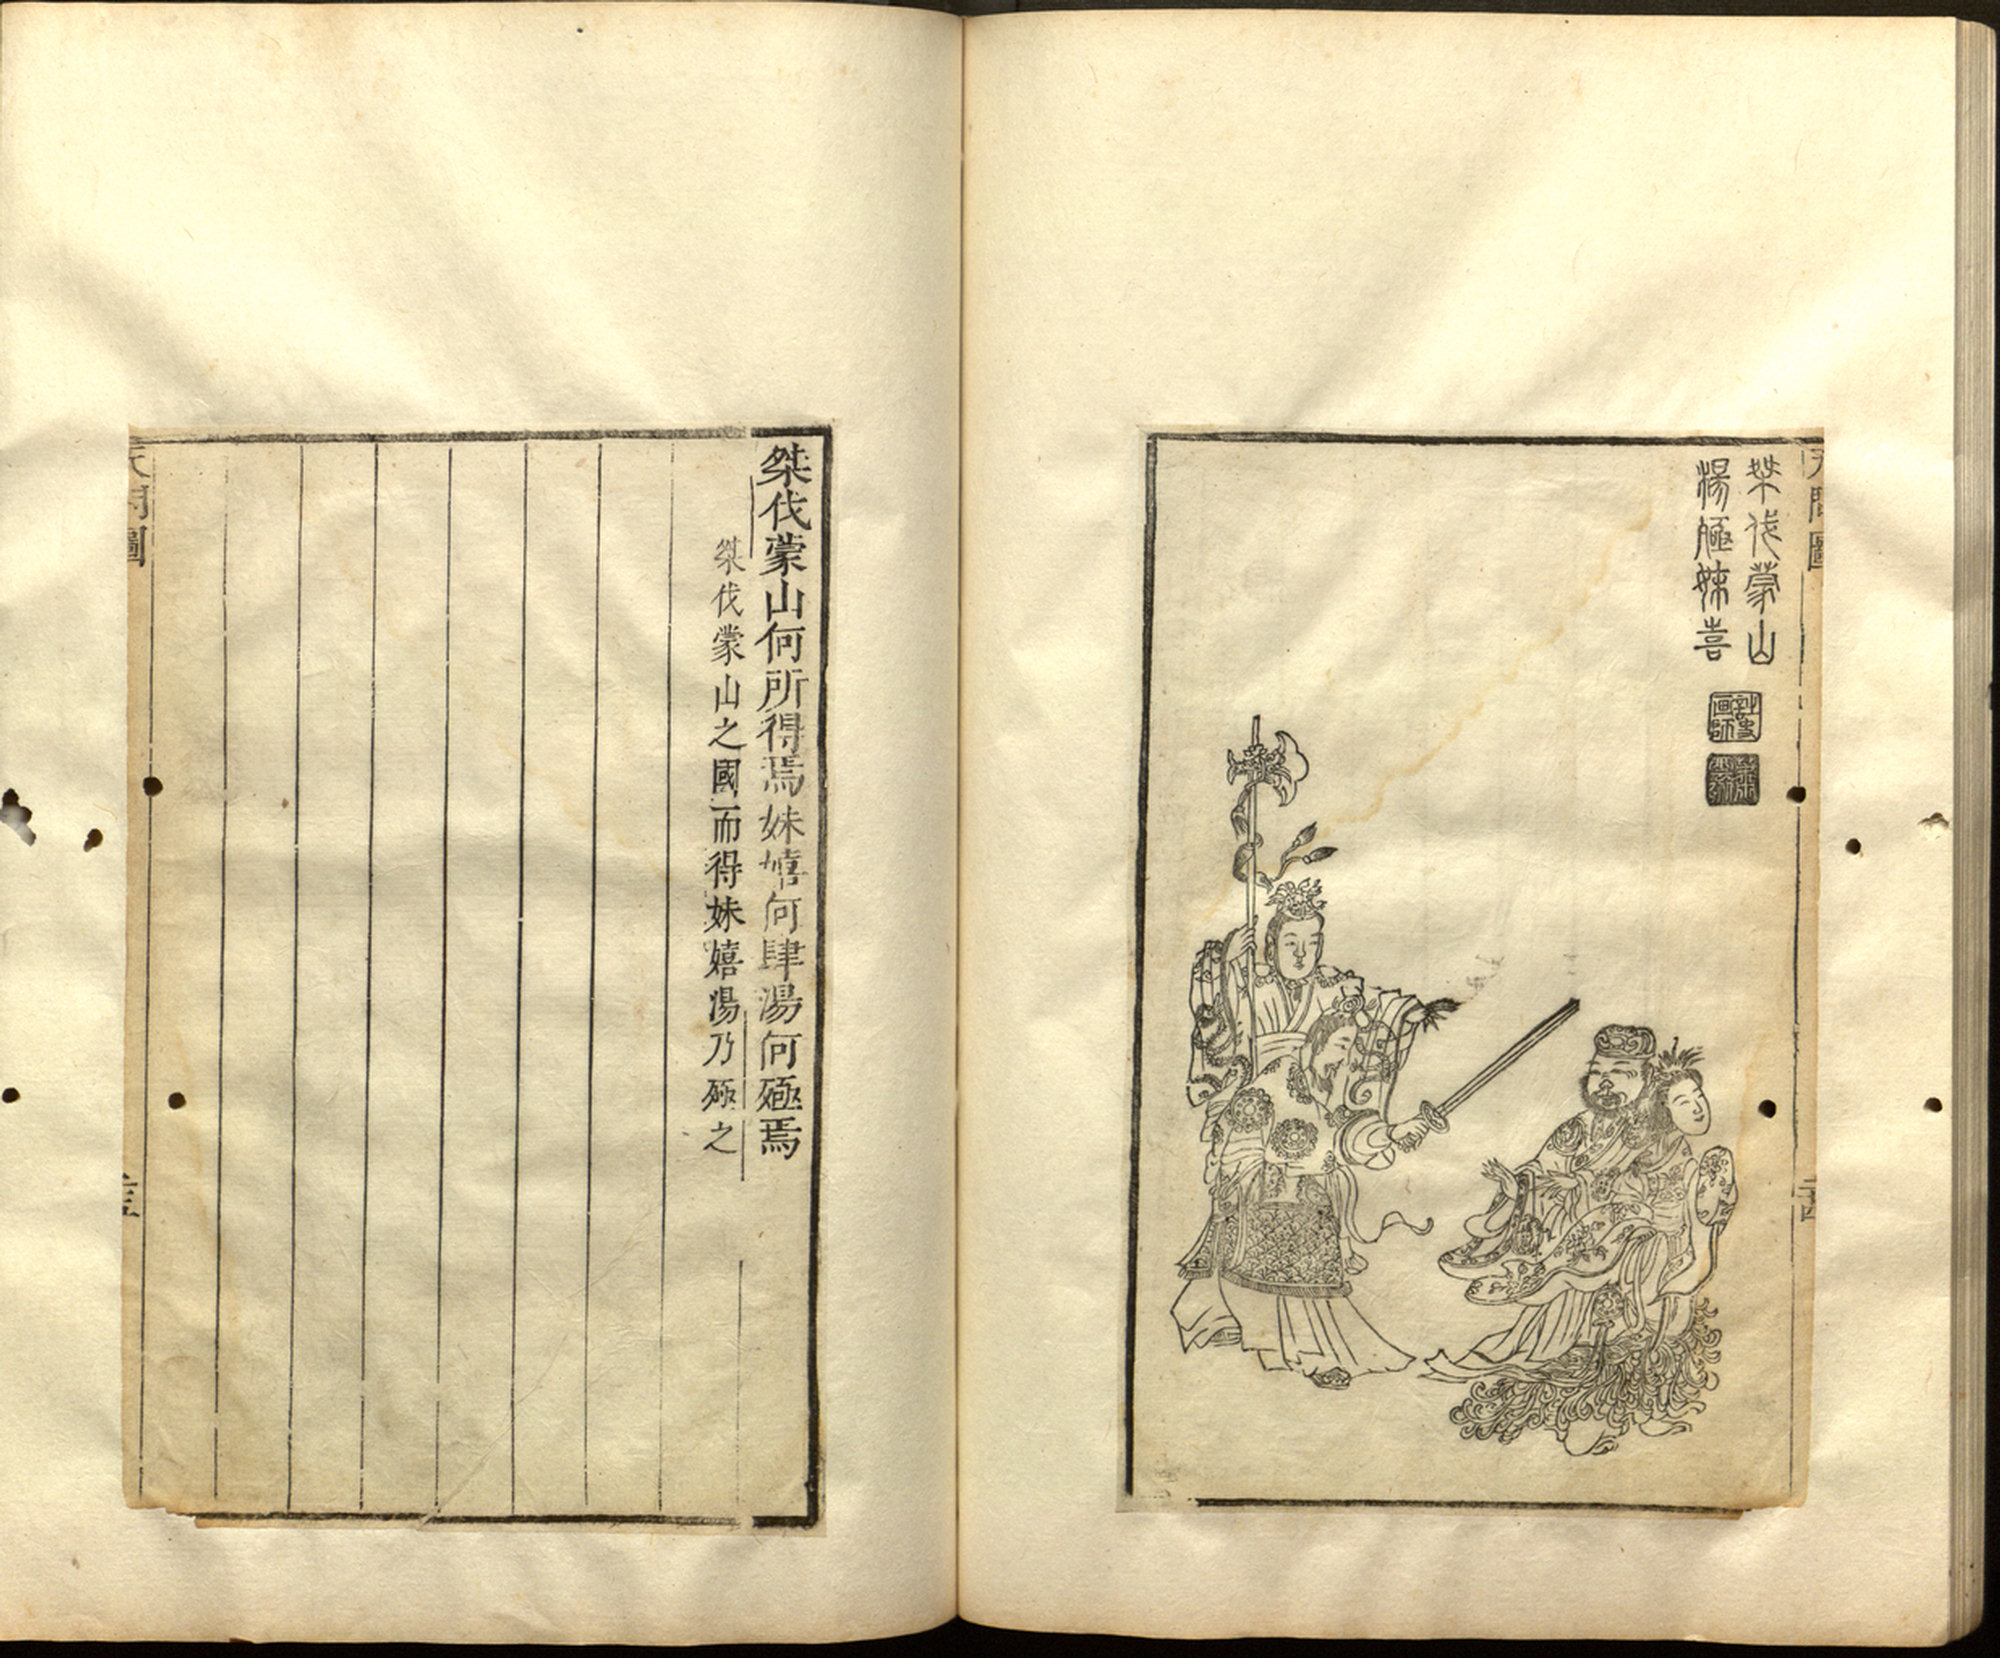 天問圖
桀伐蒙山
湯殛妹喜
桀伐蒙山何所得焉妹嬉何肆湯何殛焉
桀伐蒙山之國而得妹嬉湯乃殛之
天問圖